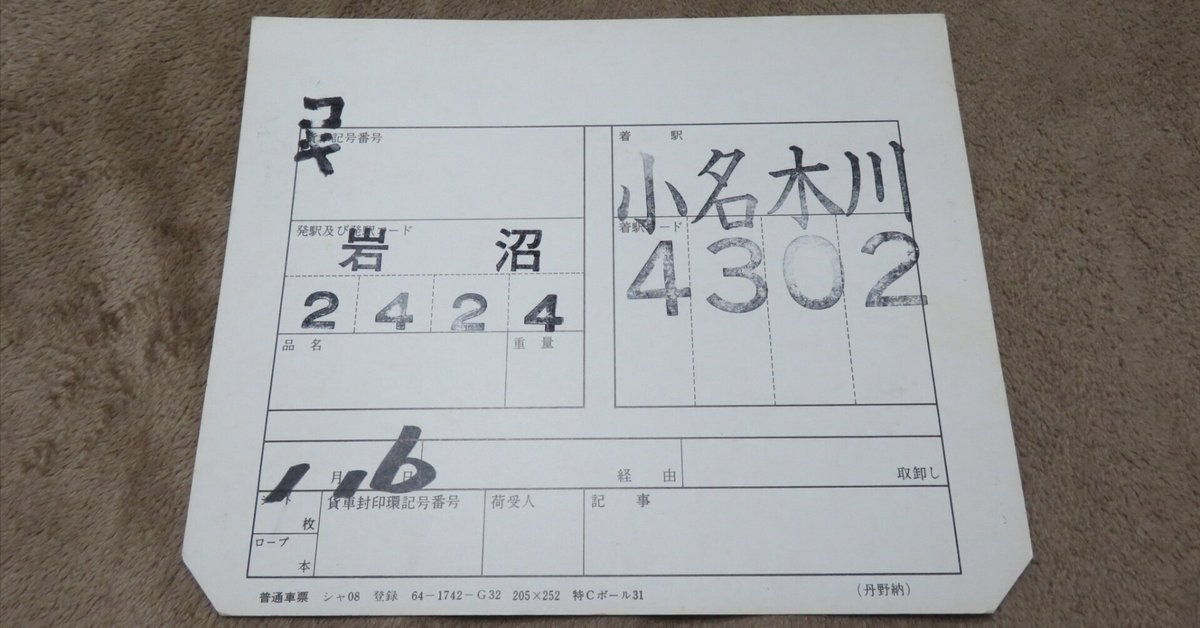 コキ
記号番号
発駅及び発駅コード
岩沼
2424
品名
重量
着駅
小名木川
着駅コード
4302
月
日
1 6
経由
取卸し
シート
枚
ロープ
本
貨車封印環記号番号
荷受人
記事
普通車票 シャ08 登録 64-1742-G32 205×252 特Cボール31
(丹野納)